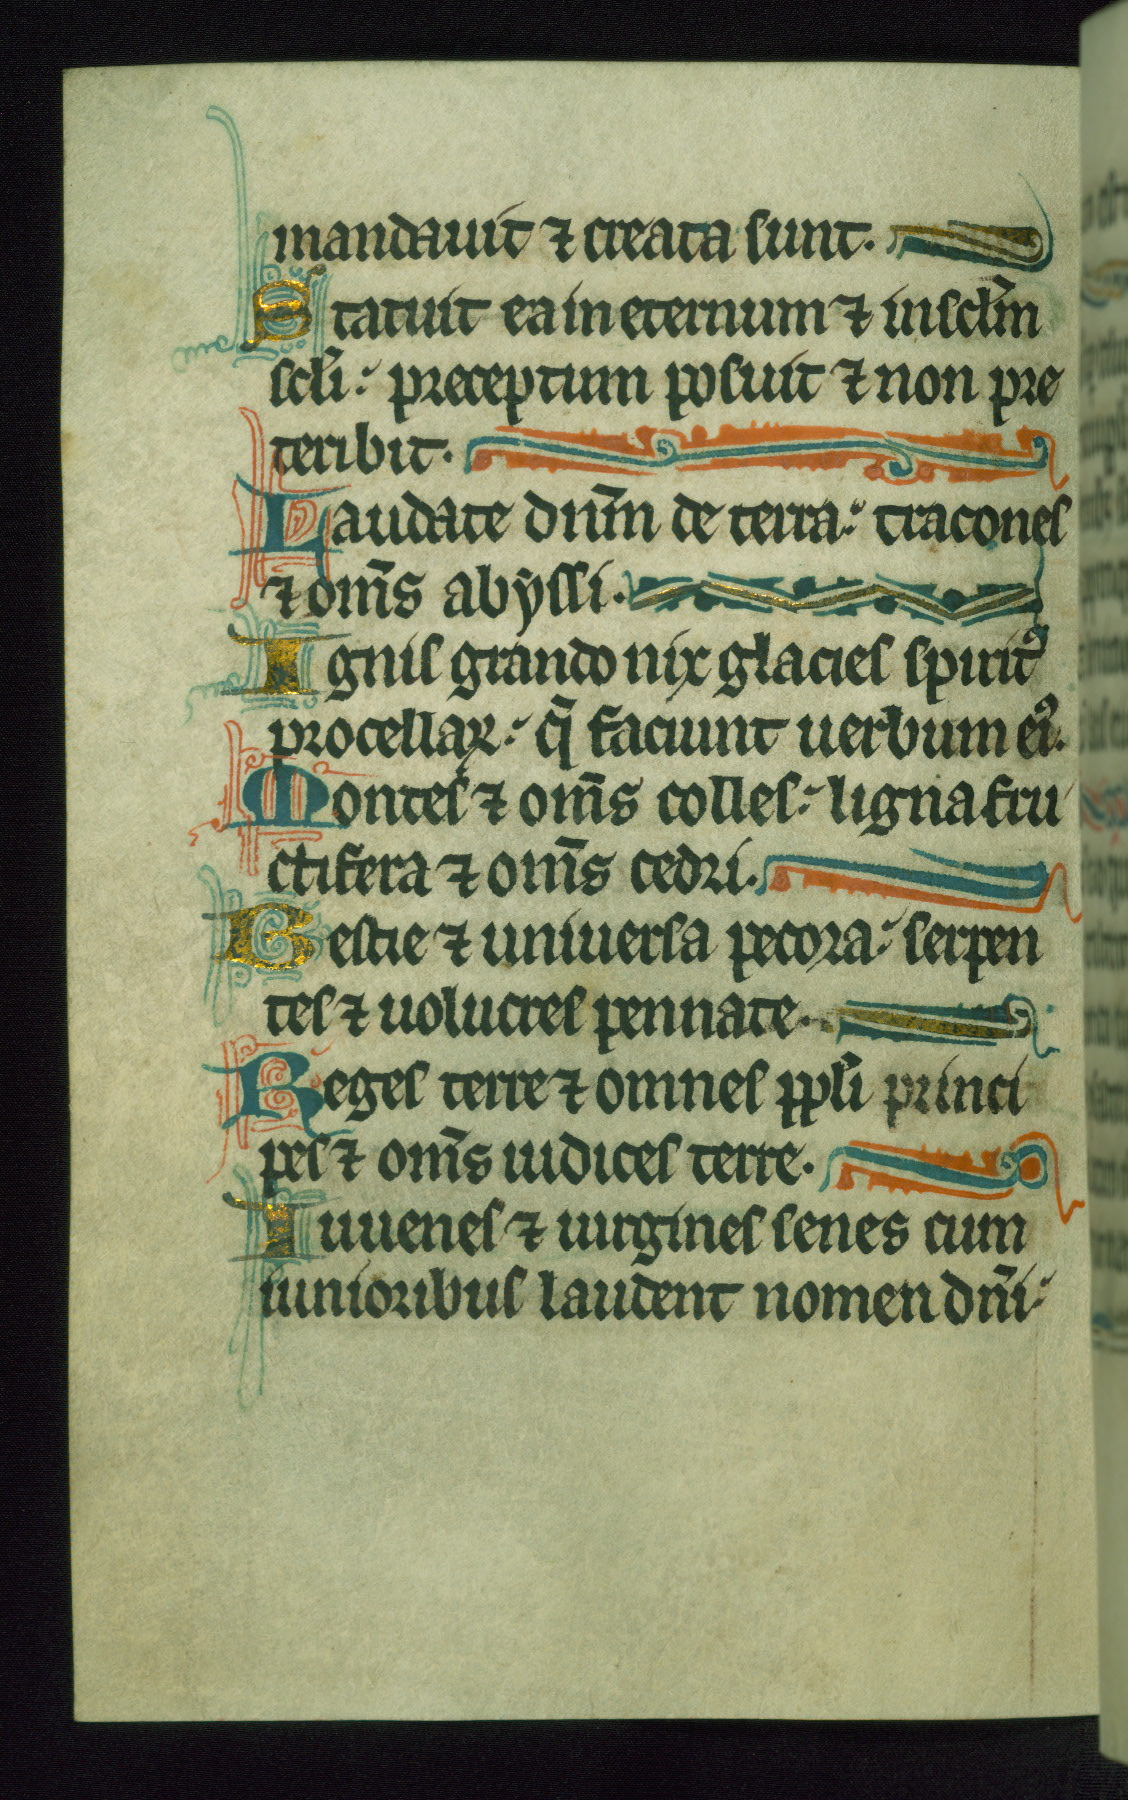 mandauit ⁊ creata sunt.
Statuit ea in eternum ⁊ in sclm̄
scli̅: preceptum posuit ⁊ non pre
teribit.
Laudate dn̄m de terra: tracones
⁊ om̄s abyssi.
Ignis grando nix glacies spiritꝰ
procellaꝝ: q̄ faciunt uerbum eiꝰ.
Montes ⁊ om̄s colles: ligna fru
ctifera ⁊ om̄s cedri.
Bestie ⁊ uniuersa pecora: serpen
tes ⁊ uolucres pennate.
Reges terre ⁊ omnes ppl̄i princi
pes ⁊ om̄s iudices terre.
Iuuenes ⁊ uirgines senes cum
iunioribus laudent nomen dn̄i: